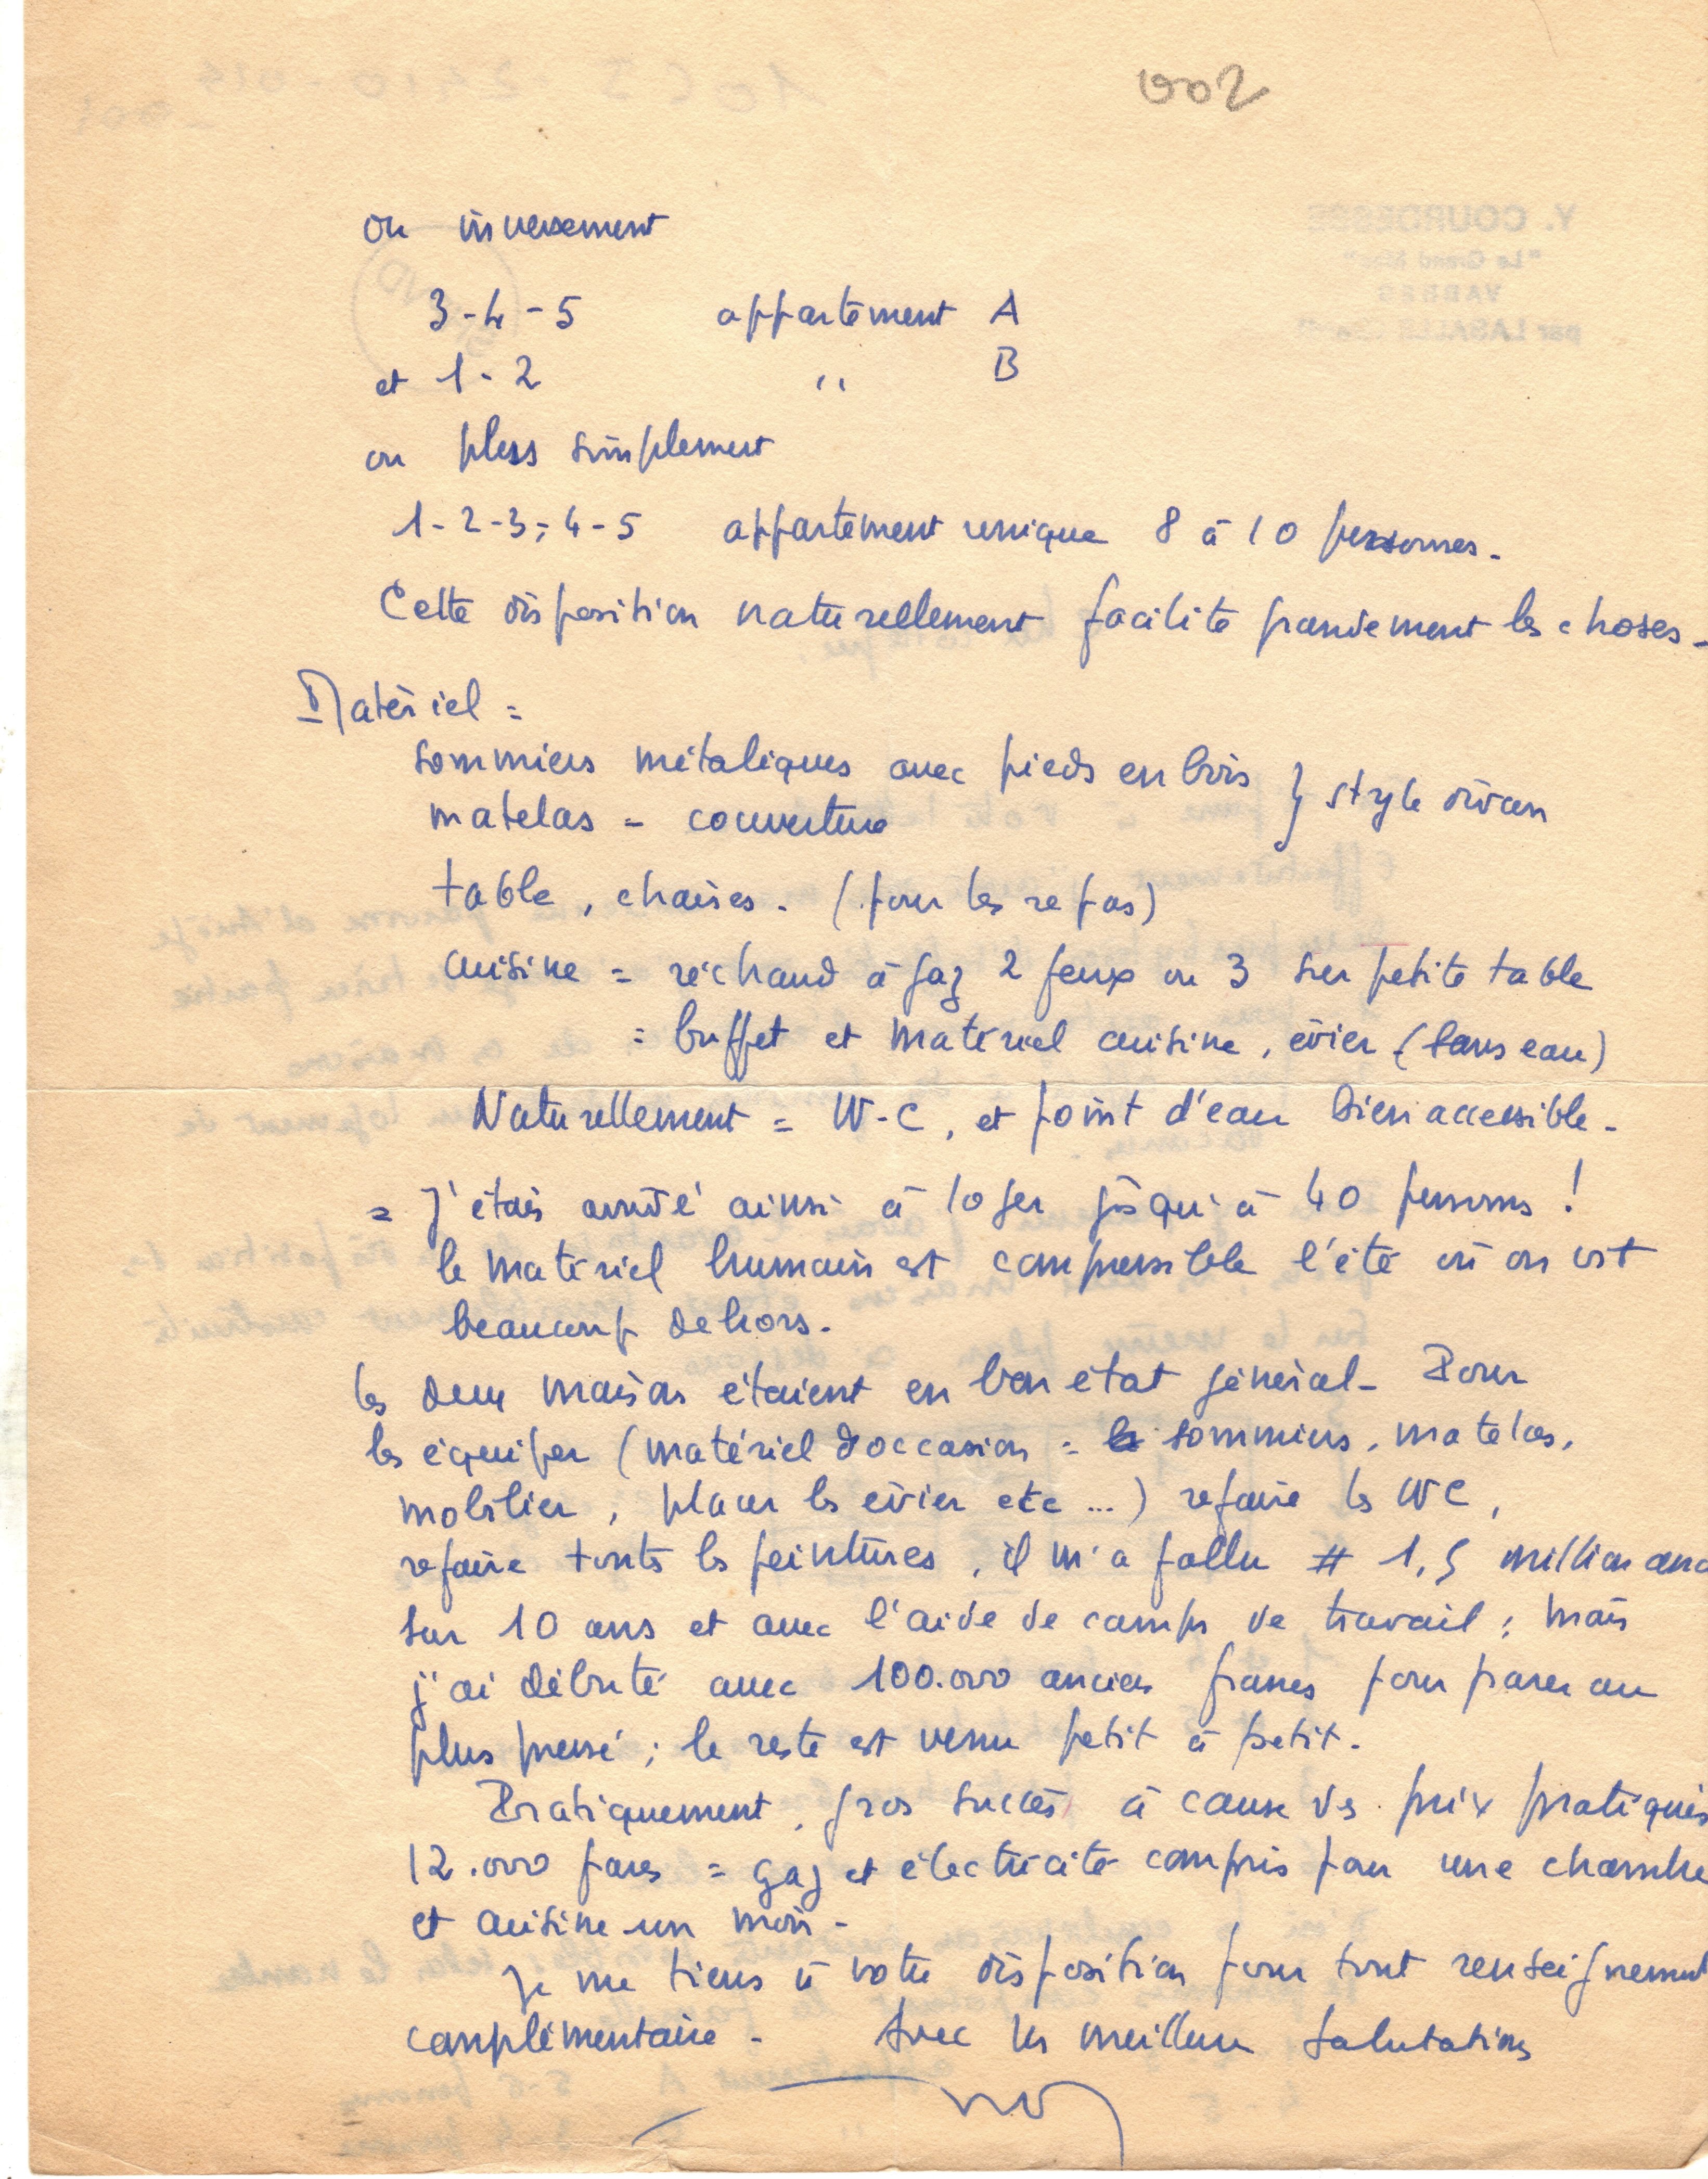 002
ou inversement
3-4-5 appartement A
et 1-2 " B
ou pluss simplement
1-2-3-4-5 appartement unique 8 à 10 personnes.
Cette disposition naturellement facilite grandement les choses.
Matériel =
sommiers métaliques avec pieds en bois } style divan
matelas - couverture
table, chaises. (pour les repas)
cuisine = réchaud à gaz 2 feux ou 3 sur petite table
= buffet et matériel cuisine, évier (sans eau)
Naturellement = W-C, et point d'eau bien accessible.
= J'étais arrivé ainsi à loger jusqu'à 40 personnes !
le matériel humain est compressible l'été où on est
beaucoup dehors.
les deux maisons étaient en bon état général. Pour
les équiper (matériel d'occasion = sommiers, matelas,
mobilier, placer les évier etc ...) refaire les WC,
refaire toutes les peintures, il m'a fallu # 1,5 million anc
sur 10 ans et avec l'aide de camps de travail ; mais
j'ai débuté avec 100.000 anciens francs pour parer au
plus pressé ; le reste est venu petit à petit.
Pratiquement, gros succès à cause des prix pratiqués
12.000 francs = gaz et électricité compris pour une chambre
et cuisine un mois.
Je me tiens à votre disposition pour tout renseignement
complémentaire. Avec les meilleures salutations